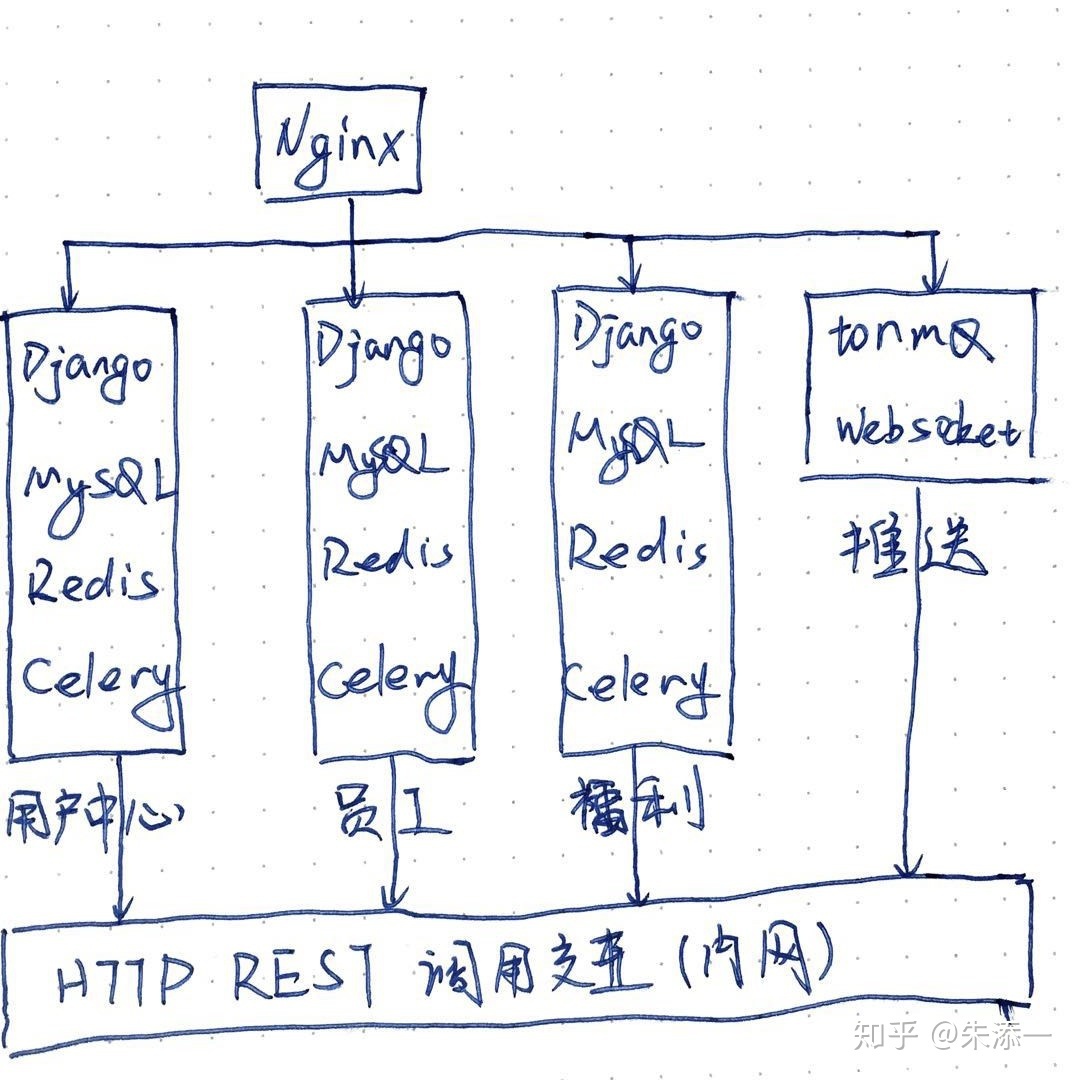 Nginx
Django
MySQL
Redis
Celery
用户中心
Django
MySQL
Redis
Celery
员工
Django
MySQL
Redis
Celery
福利
tonmQ
Websocket
推送
HTTP REST 调用交互 (内网)
知乎 @朱添一